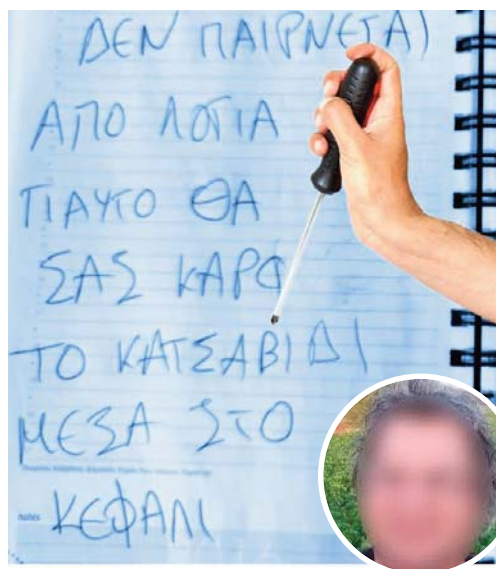 ΔΕΝ ΠΑΙΡΝΕΤΑΙ
ΑΠΟ ΛΟΓΙΑ
ΓΙΑΥΤΟ ΘΑ
ΣΑΣ ΚΑΡΦ
ΤΟ ΚΑΤΣΑΒΙΔΙ
ΜΕΣΑ ΣΤΟ
ΚΕΦΑΛΙ